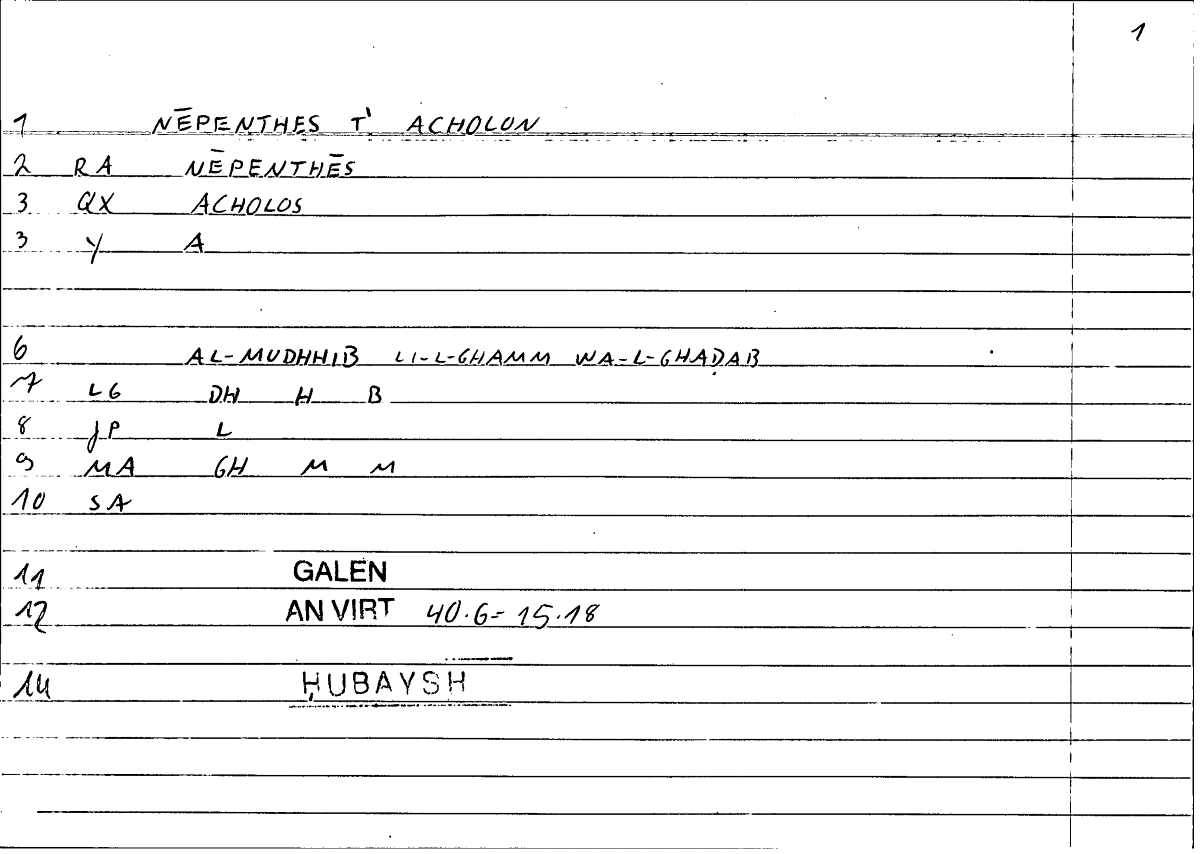 1
1 NĒPENTHES T' ACHOLON
2 RA NĒPENTHĒS
3 QX ACHOLOS
3 Y A
6 AL-MUDHHIB LI-L-GHAMM WA-L-GHAḌAB
7 LG DH H B
8 JP L
9 MA GH M M
10 SA
11 GALEN
12 AN VIRT 40.6= 15.18
14 ḤUBAYSH